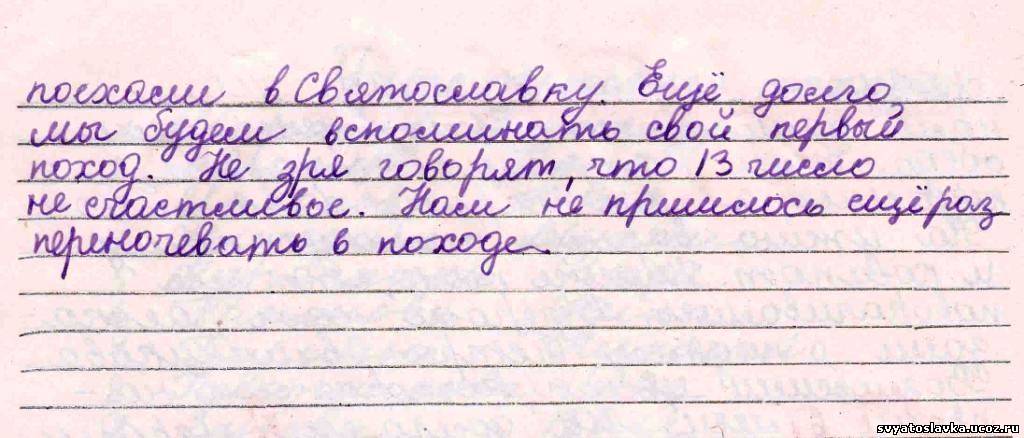 поехали в Святославку. Ещё долго
мы будем вспоминать свой первый
поход. Не зря говорят, что 13 число
не счастливое. Нам не пришлось ещё раз
переночевать в походе.
svyatoslavka.ucoz.ru